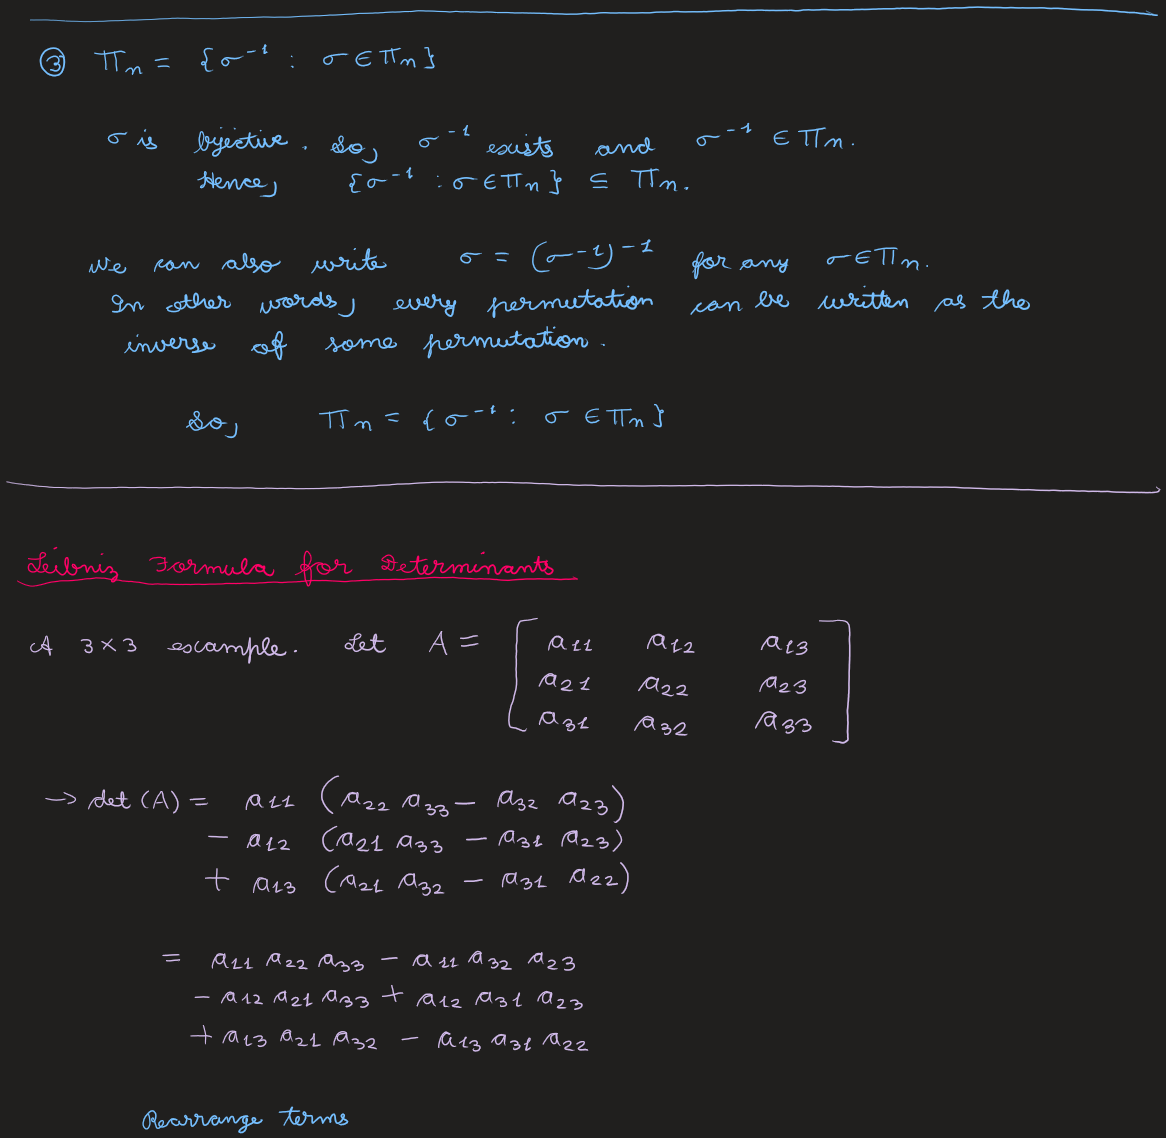 ③ Πn = {σ⁻¹ : σ ∈ Πn}
σ is bijective. So, σ⁻¹ exists and σ⁻¹ ∈ Πn.
Hence, {σ⁻¹ : σ ∈ Πn} ⊆ Πn.
We can also write σ = (σ⁻¹)⁻¹ for any σ ∈ Πn.
In other words, every permutation can be written as the
inverse of some permutation.
So, Πn = {σ⁻¹ : σ ∈ Πn}
Leibniz Formula for Determinants
A 3×3 example. Let A = [a11 a12 a13
a21 a22 a23
a31 a32 a33]
→ det (A) = a11 (a22 a33 − a32 a23)
− a12 (a21 a33 − a31 a23)
+ a13 (a21 a32 − a31 a22)
= a11 a22 a33 − a11 a32 a23
− a12 a21 a33 + a12 a31 a23
+ a13 a21 a32 − a13 a31 a22
Rearrange terms